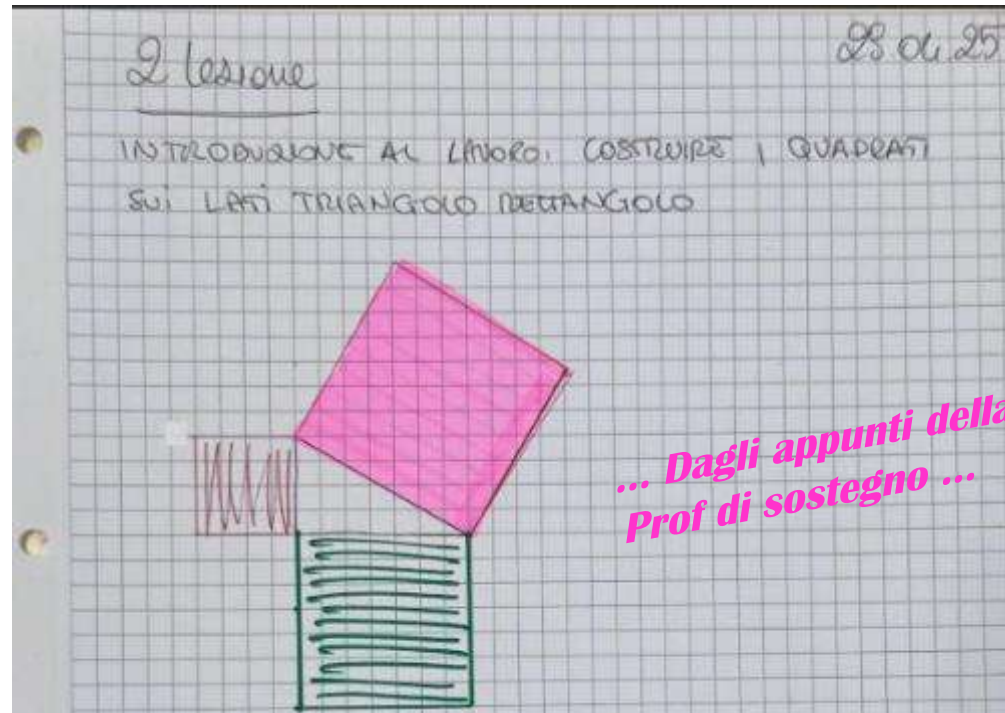 2 lezione
23 04 25
INTRODUZIONE AL LAVORO: COSTRUIRE I QUADRATI
SUI LATI TRIANGOLO RETTANGOLO
... Dagli appunti della
Prof di sostegno ...